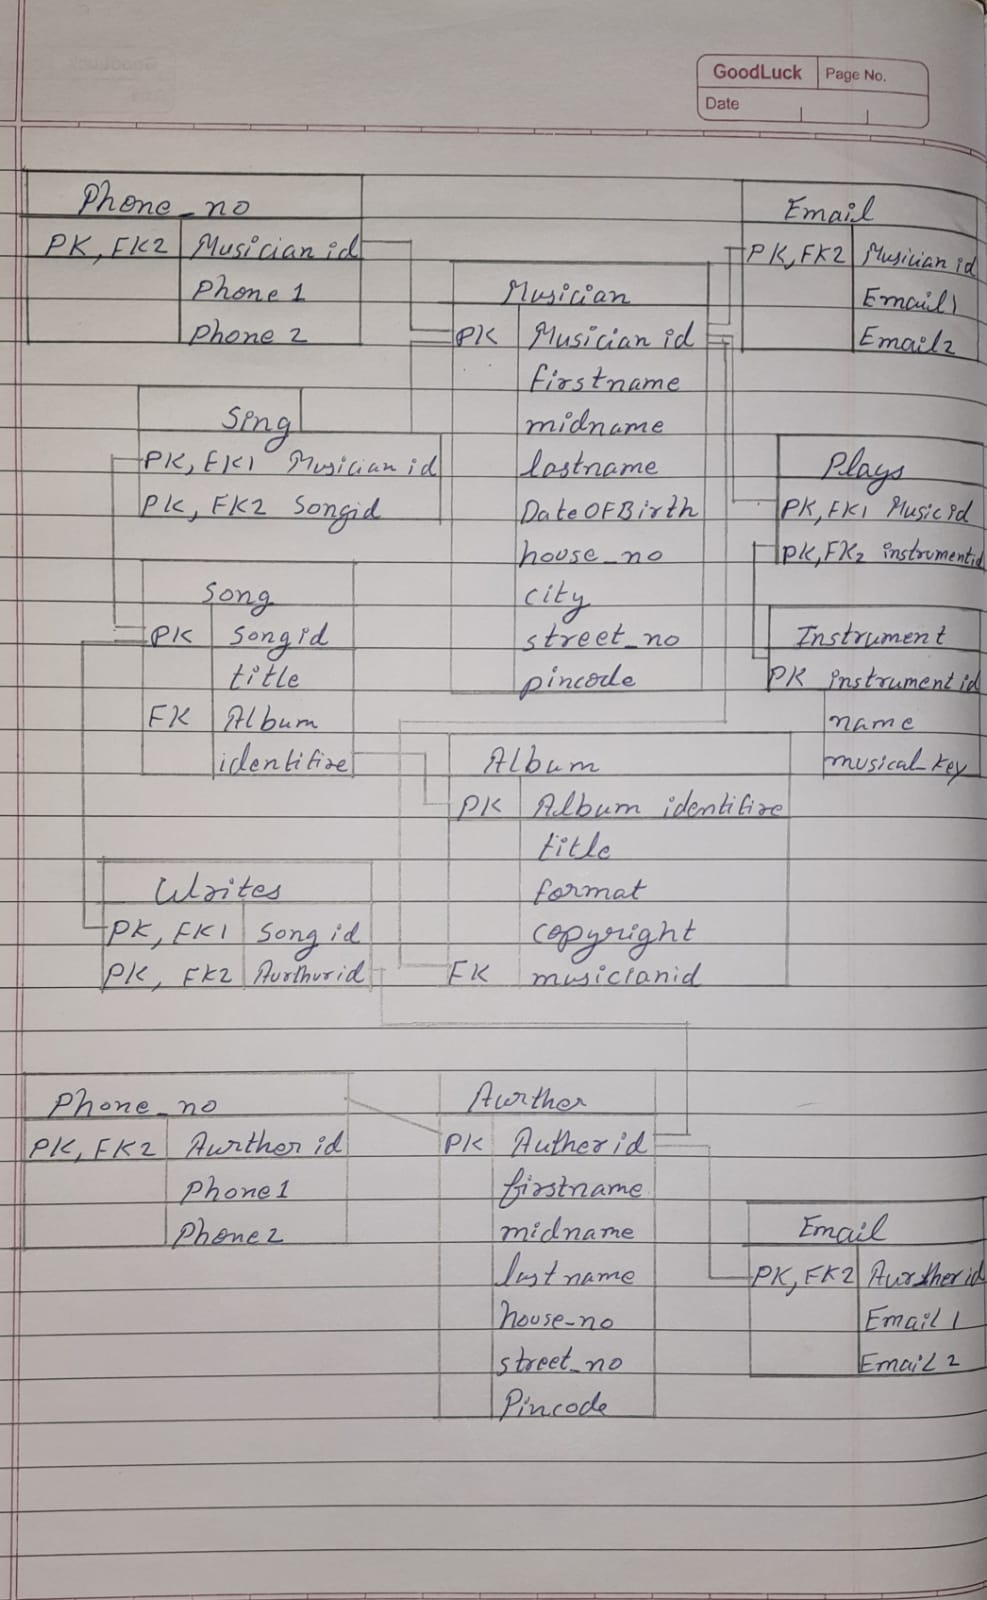 GoodLuck Page No.
Date
Phone_no
PK, FK2 Musician id
Phone 1
Phone 2
Email
PK, FK2 Musician id
Email1
Email2
Musician
PK Musician id
firstname
midname
lastname
DateOfBirth
house_no
city
street_no
pincode
Sing
PK, FK1 Musician id
PK, FK2 Songid
Plays
PK, FK1 Music id
PK, FK2 instrumentid
Song
PK Songid
title
FK Album
identifire
Instrument
PK instrument id
name
musical_key
Album
PK Album identifire
title
format
copyright
FK musicianid
Writes
PK, FK1 Song id
PK, FK2 Aurthurid
Phone_no
PK, FK2 Aurther id
Phone1
Phone2
Aurther
PK Auther id
firstname
midname
lastname
house_no
street_no
Pincode
Email
PK, FK2 Aurther id
Email 1
Email 2